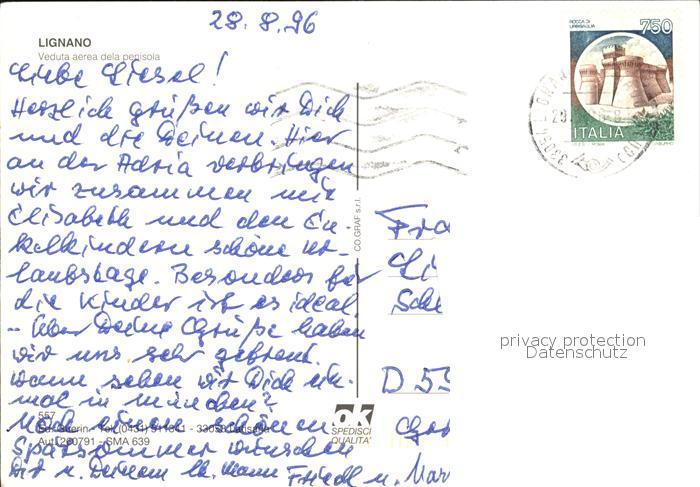 28.8.96
LIGNANO
Veduta aerea dela penisola
Liebe Liesel!
Herzlich grüßen wir Dich
und die Deinen. Hier
an der Adria verbringen
wir zusammen mit
Elisabeth und den En-
kelkindern schöne Ur-
laubstage. Besonders für
die Kinder ist es ideal.
– Über Deine Grüße haben
wir uns sehr gefreut.
Wann sehen wir Dich ein-
mal in München?
Noch einen schönen
Spätsommer wünschen
Dir u. Deinem lb. Mann Friedl u. Mar
557
Tel. (0431) 511841 - 33053
Aut. 260791 - SMA 639
CO.GRAF s.r.l.
ok
SPEDISCI
QUALITA'
ROCCA DI
URBISAGLIA
750
ITALIA
Fra
Li
Sch
D 55
privacy protection
Datenschutz